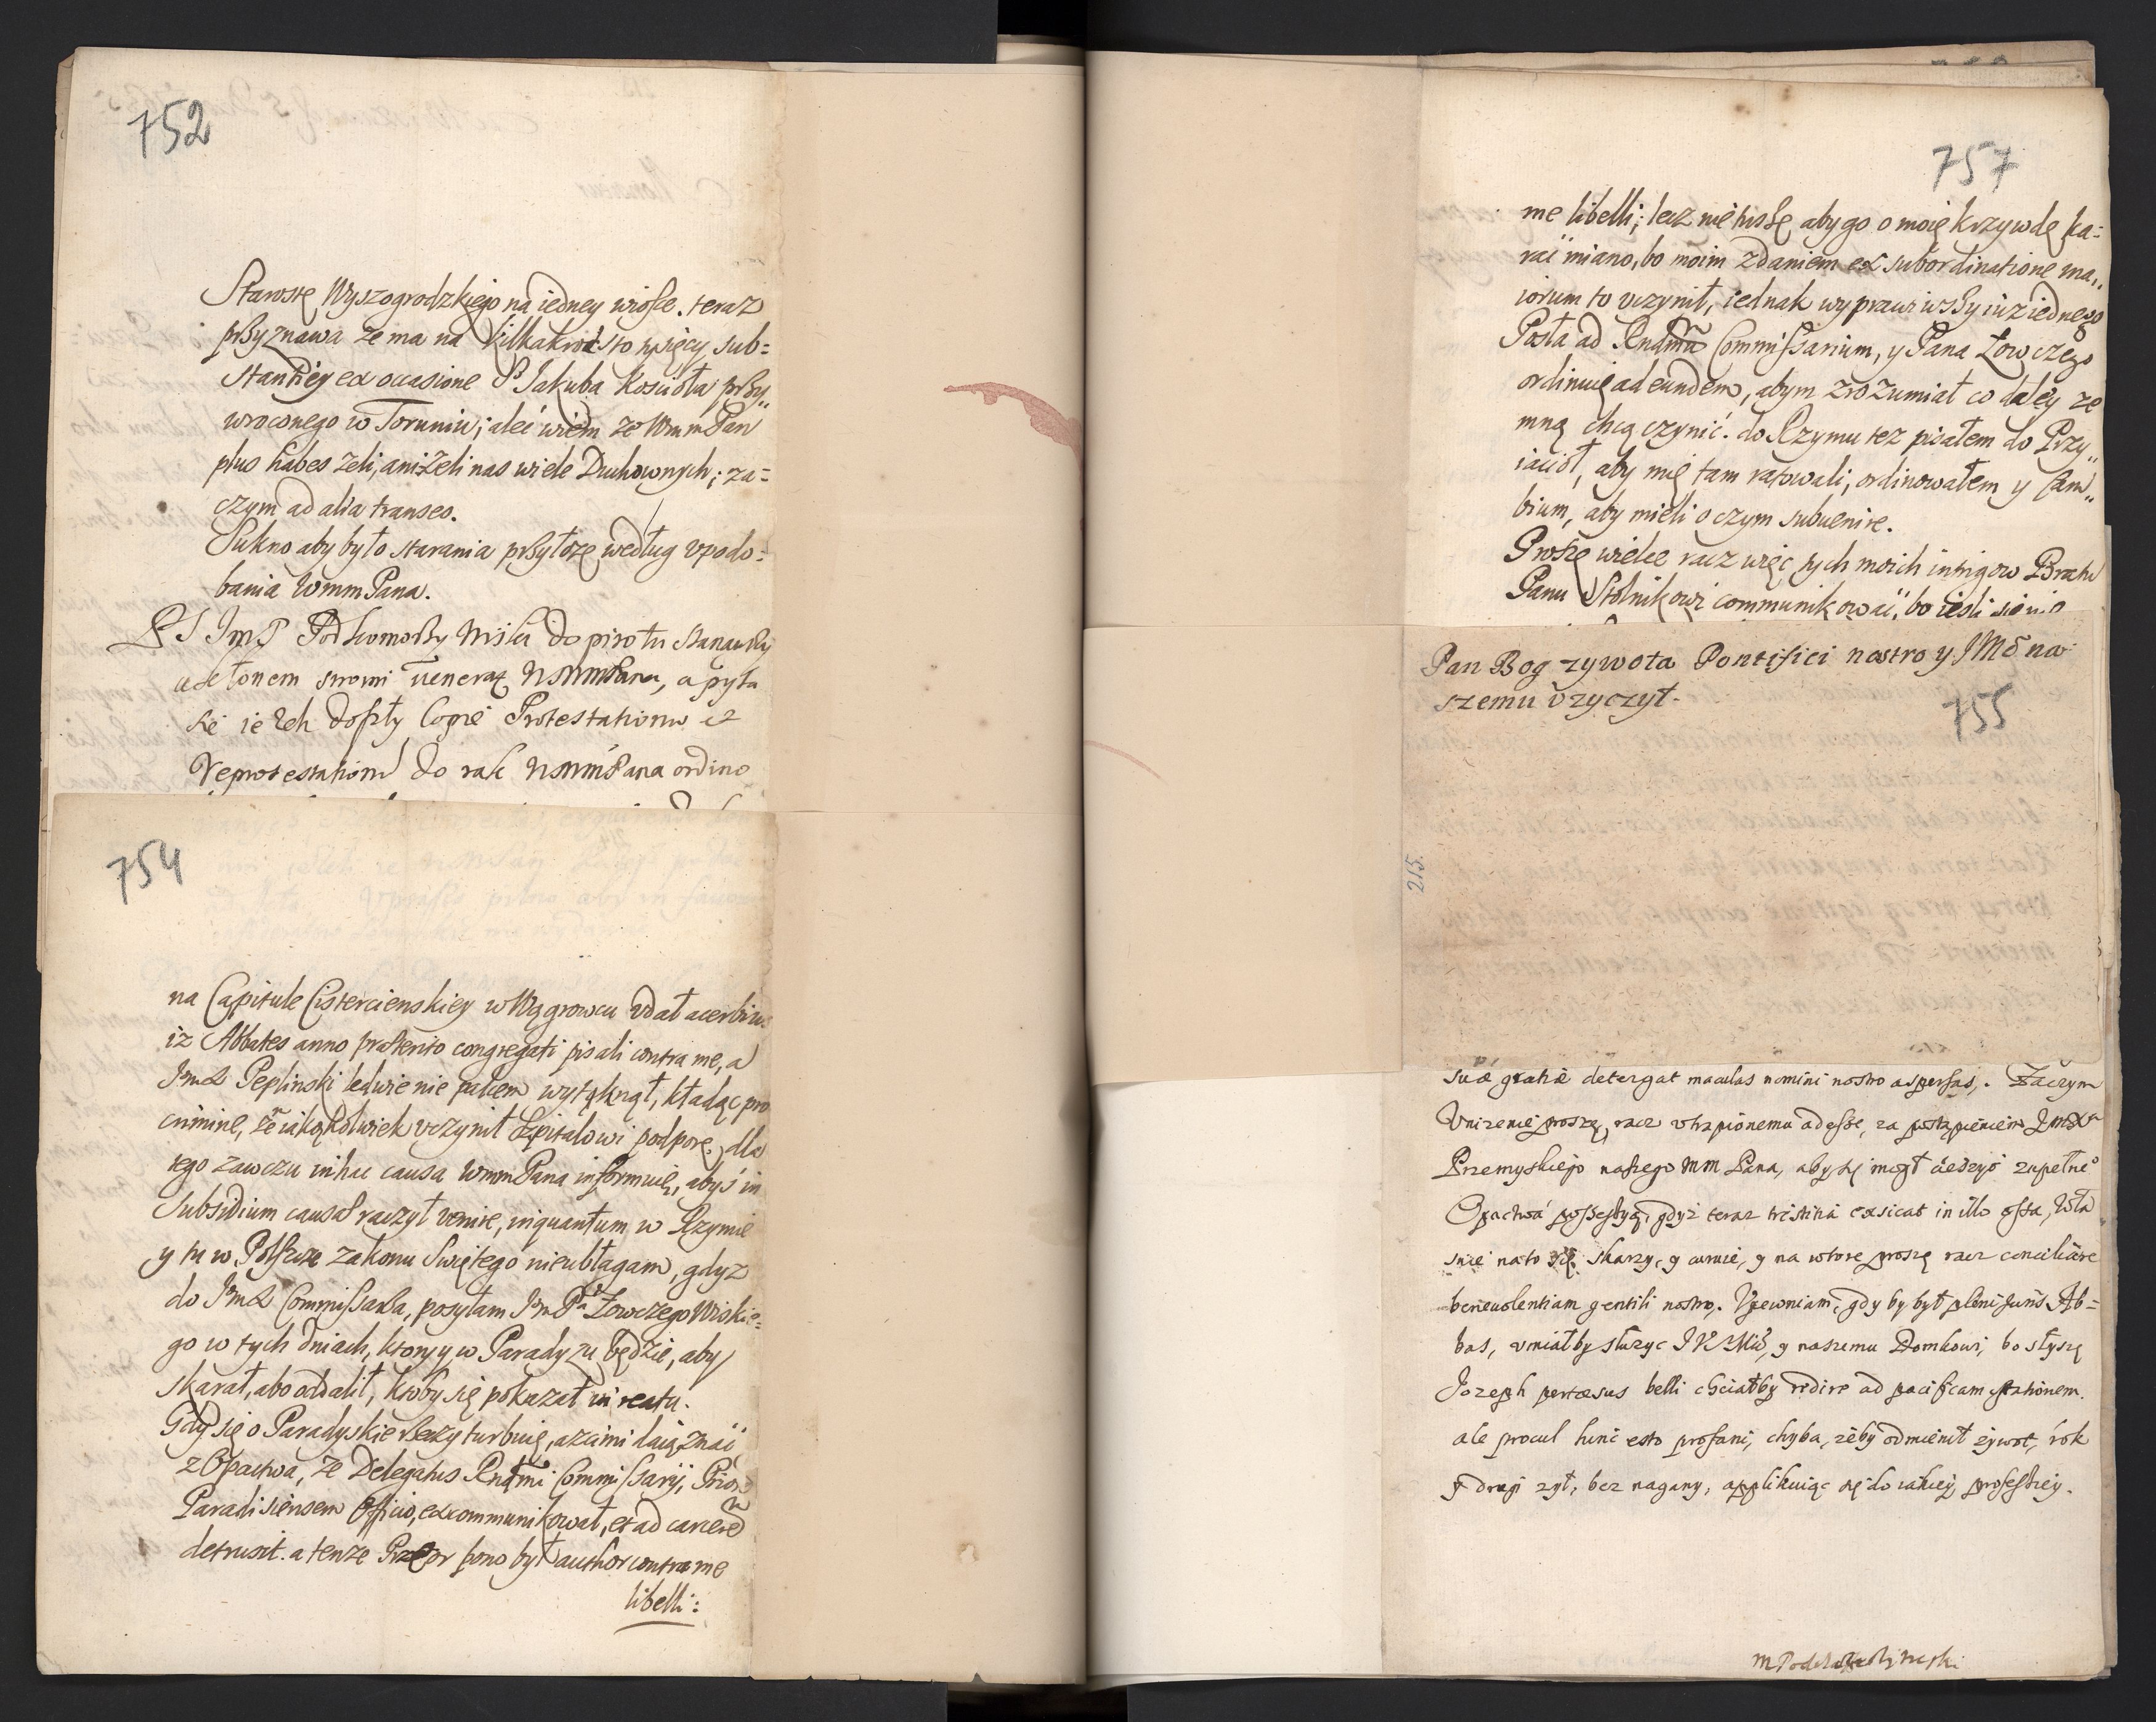 752
Starostę Wyszogrodzkiego na iedney wiosce. teraz
przyznawa że ma na kilkakroć sto tysięcy sub=
stantiey ex occasione S. Jakuba Kościoła przy„
wroconego w Toruniu; aleć wiem że WmmPan
plus habes żeli, aniżeli nas wiele Duchownych; za=
czym ad alia transeo.
Sukno aby było starania przyłożę według vpodo=
bania WmmPana.
PS JmP Podkomorzy
WmmPana, a pyta
się ieżeli doszły Copie Protestationu et
Reprotestationu do rak WmmPana ordino
754
na Capitule Cistercienskiey w Wągrowcu vdał acerbius
iż Abbates anno præterito congregati pisali contra me, a
JmX Peplinski ledwie nie palcem wytąknął, kładąc pro
crimine, że iakążkolwiek vczynił Szpitalowi podporę. dla
tego zawczu in hac causa WmmPana informuię, abyś in
subsidium causæ raczył venire, inquantum w Rzymie
y tu w Polszcze zakonu Swiętego nieubłagam, gdyz
do JmX Commissarza, posyłam Jm Pa Łowczego Wiskie=
go w tych dniach, ktory y w Paradyzu będzie, aby
skarał, abo oddalił, ktoby się pokazał in reatu.
Gdy się o Paradyskie rzeczy turbuię, aż ci mi daią znać
z Opactwa, że Delegatus Rndmi Commissarij, Prior
Paradisiensem officio, excommunikował, et ad carcere
detrusit. a tenże Przeor pono był author contra me
libelli:
757
me libelli; lecz nie tuszę aby go o moię krzywdę ka=
rać miano, bo moim zdaniem ex subordinatione ma„
iorum to vczynił, iednak wyprawiwszy iuż iednego
Posła ad Rndmu Commissarium, y Pana Łowczego
ordinuię ad eundem, abym zrozumiał co daley ze
mną chcą czynić. do Rzymu też pisałem do Przy„
iaciół, aby mię tam ratowali, ordinowałem y Cam„
bium, aby mieli o czym subuenire.
Proszę wielce racz więc tych moich intrigow Bratu
Panu Stolnikowi communikować, bo iesli się nie
Pan Bog zywota Pontifici nostro y JMō na
szemu vzyczył.
755
215.
suæ gratiæ detergat maculas nomini nostro aspersas. Zaczym
Vnizenie proszę, racz vtrapionemu adesse, za postąpieniem JmXa
Przemyskiego naszego mm Pana, aby się mogł cieszyć zupełne
Opactwa possessyą, gdyż teraz tristitia exsicat in illo ossa, Wła
snie na to się skarzy, y
benevolentiam gentili nostro. Vpewniam, gdy by był pleni juris Ab=
bas, vmiałby służyc JWMści, y naszemu Domkowi, bo słyszę
Jozeph pertæsus belli chciałby redire ad pacificam stationem.
ale procul hinc esto profani, chyba, żeby odmienił żywot, rok
y drugi żył, bez nagany, applikuiąc się do iakiey professiey.